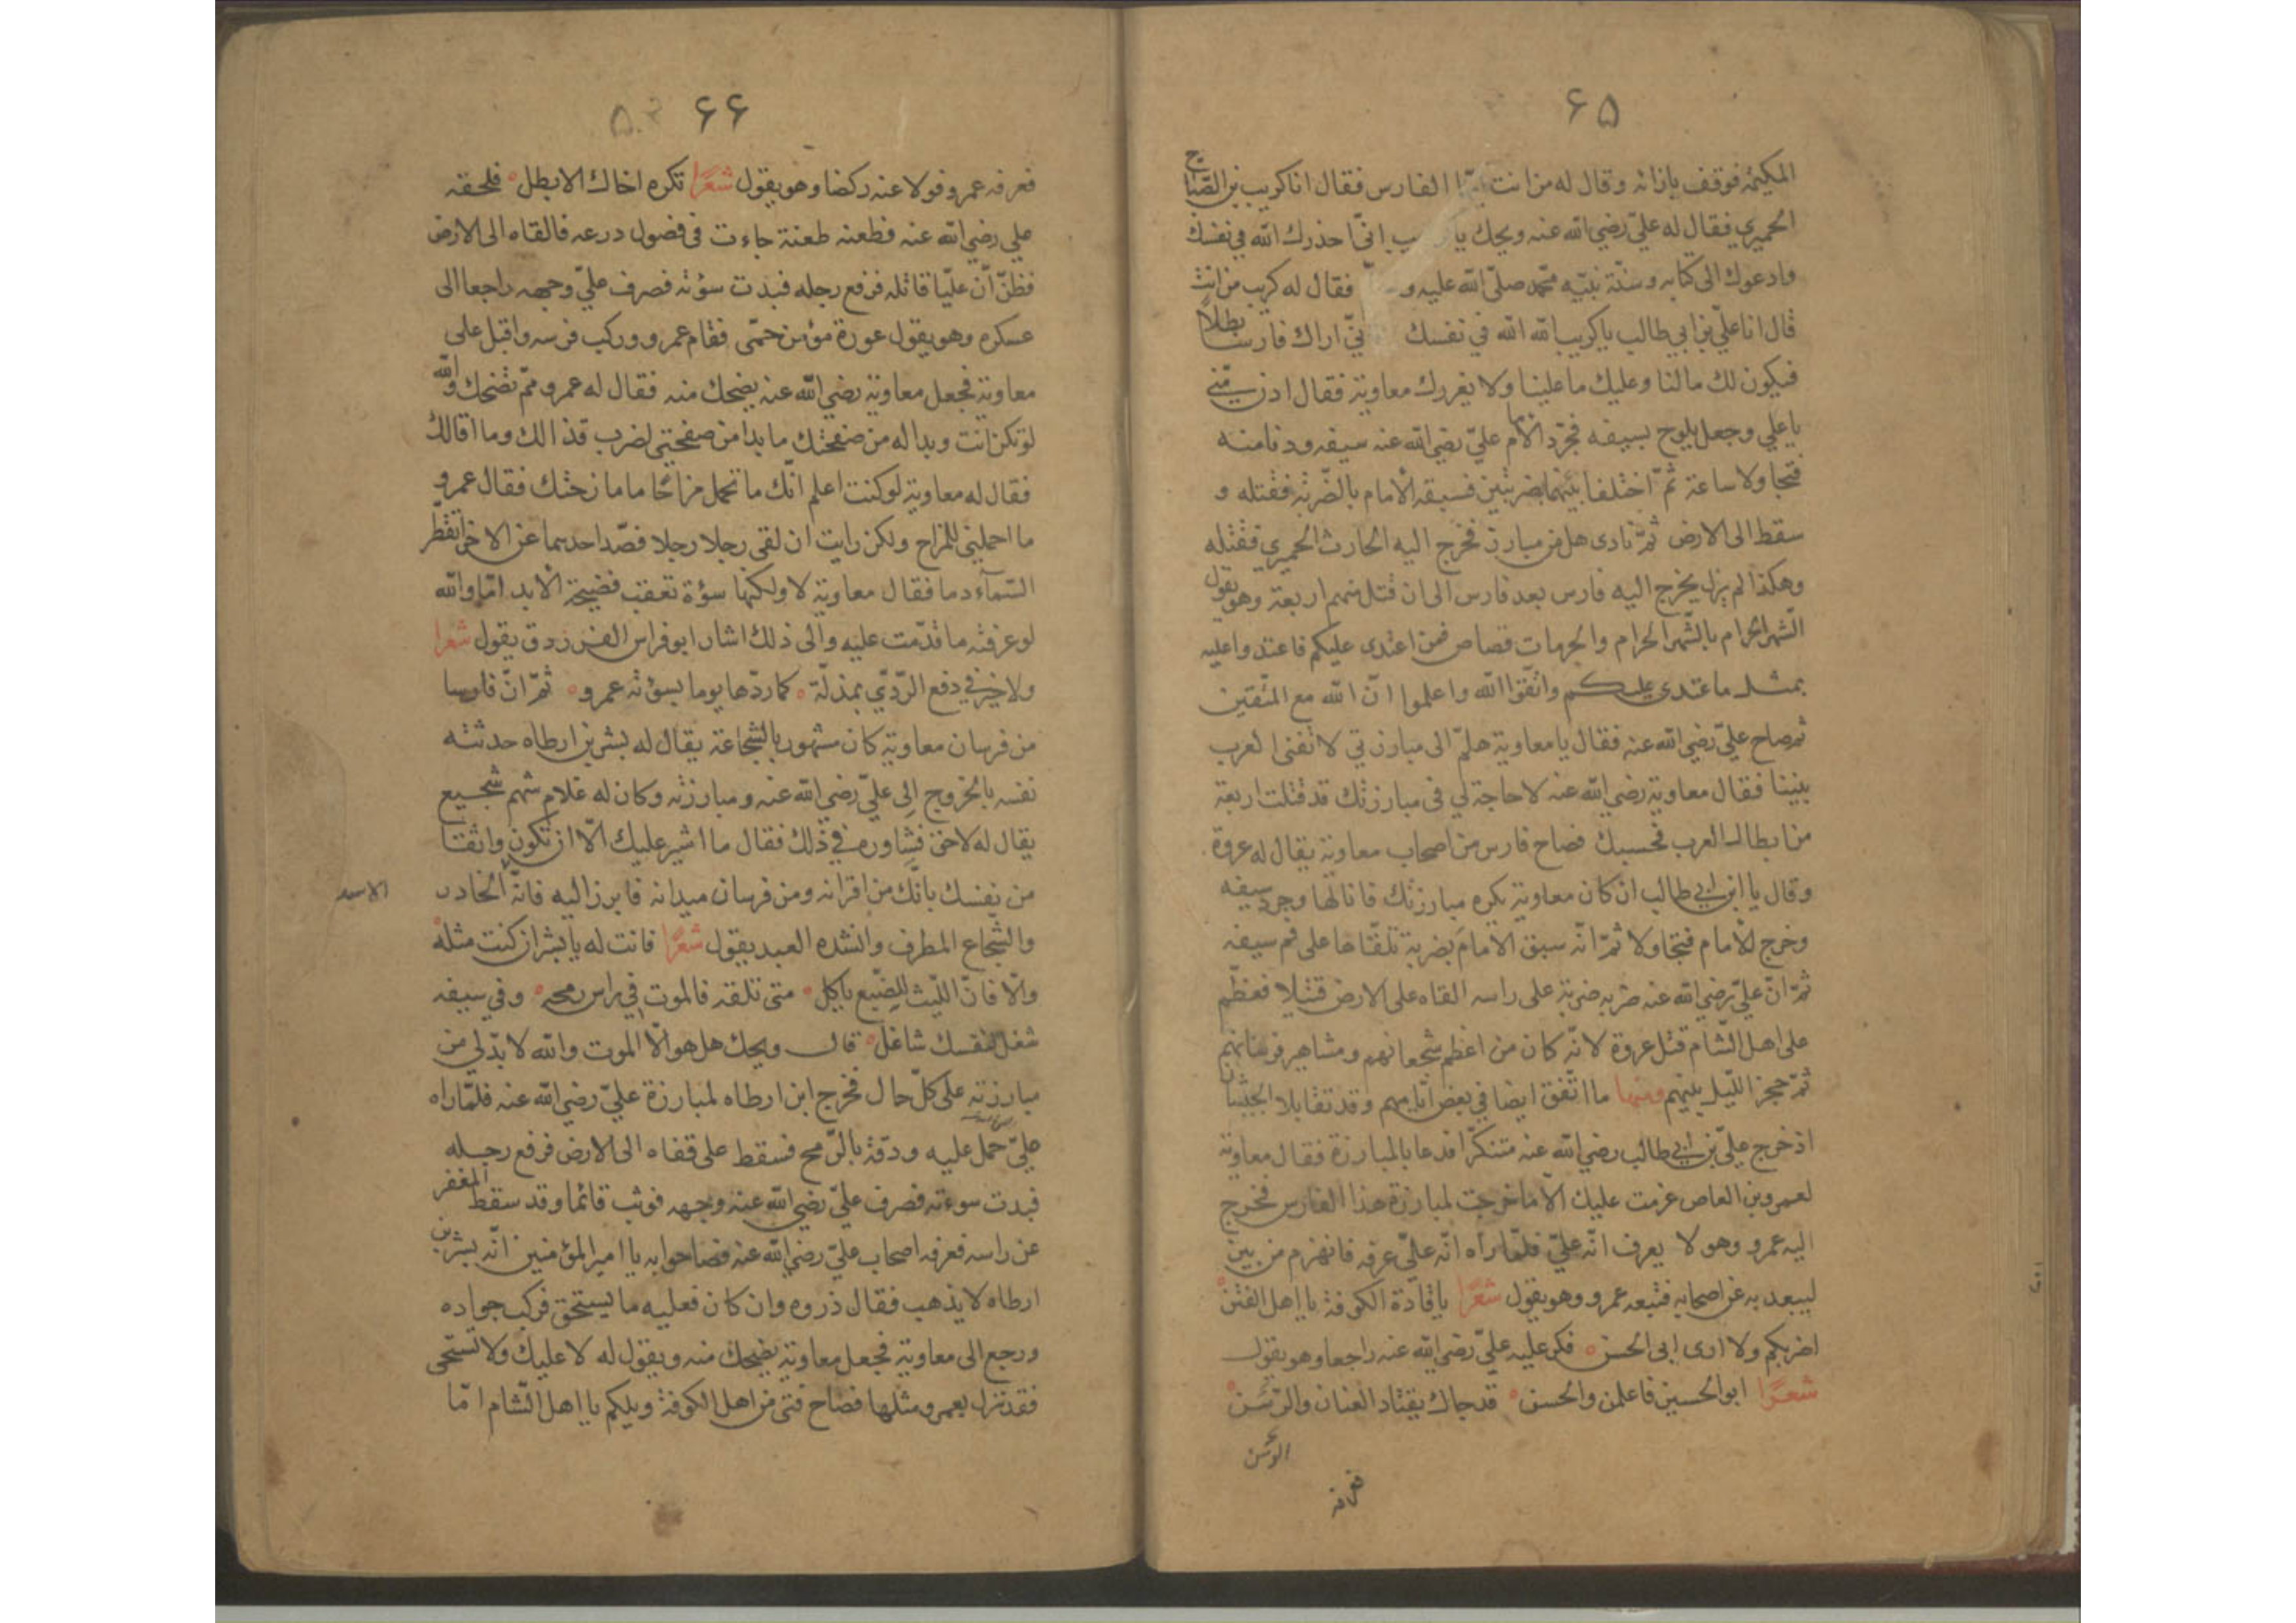 ۶۵
المكيّة فوقف بازائه وقال له من انت ايّها الفارس فقال انا كريب بن الصّباح
الحميري فقال له عليّ رضي الله عنه ويحك يا كريب انّي احذرك الله في نفسك
وادعوك الى كتابه وسنّة نبيّه محمّد صلّى الله عليه و فقال له كريب من انت
قال انا عليّ بن ابي طالب يا كريب الله الله في نفسك انّي اراك فارسا بطلاً
فيكون لك ما لنا وعليك ما علينا ولا يغررك معاوية فقال ادن منّي
يا علي وجعل يلوح بسيفه فجرّد الامام عليّ رضي الله عنه سيفه ودنا منه
فتجاولا ساعة ثمّ اختلفا بينهما بضربتين فسبقه الأمام بالضّربة فقتله و
سقط الى الارض ثمّ نادى هل من مبارز فخرج اليه الحارث الحميري فقتله
وهكذا لم يزل يخرج اليه فارس بعد فارس الى ان قتل منهم اربعة وهو يقول
الشّهر الحرام بالشّهر الحرام والحرمات قصاص فمن اعتدى عليكم فاعتدوا عليه
بمثل ما عتدى عليكم واتّقوا الله واعلموا انّ الله مع المتّقين
ثم صاح عليّ رضي الله عنه فقال يا معاوية هلمّ الى مبارزتي لا تفنى العرب
بيننا فقال معاوية رضي الله عنه لا حاجة لي في مبارزتك قد قتلت اربعة
من ابطال العرب فحسبك فصاح فارس من اصحاب معاوية يقال له عروة
وقال يا ابن ابي طالب ان كان معاوية يكره مبارزتك فانا لها وجرد سيفه
وخرج للأمام فتجاولا ثمّ انّه سبق الامامَ بضربة تلقّاها على فم سيفه
ثمّ انّ عليّ رضي الله عنه ضربه ضربة على راسه القاه على الارض قتيلا فعظّم
على اهل الشّام قتل عروة لانّه كان من اعظم شجعانهم ومشاهير فرسانهم
ثمّ حجز اللّيل بينهم ومنها ما اتّفق ايضا في بعض ايّامهم وقد تقابلا الجيشان
اذ خرج عليّ بن ابي طالب رضي الله عنه متنكّرا فدعا بالمبارزة فقال معاوية
لعمرو بن العاص عزمت عليك الّا ما خرجت لمبارزة هذا الفارس فخرج
اليه عمرو وهو لا يعرف انّه عليّ فلمّا راه انّه عليّ عرفه فانهزم من بين
ليبعد به عن اصحابه فتبعه عمرو وهو يقول شعرًا يا قادة الكوفة يا اهل الفتن
اضربكم ولا ارى ابى الحسن فكر عليه عليّ رضي الله عنه راجعا وهو يقول
شعرًا ابو الحسين فاعلمن والحسن قد جاك يقتاد العنان والرّسن
الوسن
فعرفه
۶۶
فعرفه عمرو فولا عنه ركضا وهو يقول شعرًا تكره اخاك الا بطل فلحقه
علي رضي الله عنه فطعنه طعنة جاءت في فضول درعه فالقاه الى الارض
فظنّ أنّ عليّا قاتله فرفع رجله فبدت سؤته فصرف عليّ وجهه راجعا الى
عسكره وهو يقول عورة مؤمن حمّى فقام عمرو وركب فرسه واقبل على
معاوية فجعل معاوية رضي الله عنه يضحك منه فقال له عمرو ممّ تضحك والله
لو تكن انت وبدا له من صفحتك ما بدا من صفحتي لضرب قذالك وما اقالك
فقال له معاوية لو كنت اعلم انّك ما تحمل مزاحا ما مازحتك فقال عمرو
ما احملني للمزاح ولكن رايت ان لقى رجلا رجلا فصّد احدهما عن الاخر اتقطّر
السّماء دما فقال معاوية لا ولكنها سؤة تعقب فضيحة الابد امّا والله
لو عرفته ما قدّمت عليه والى ذلك اشار ابو فراس الفرزدق يقول شعرا
ولا خير في دفع الرّديّ بمذلّة كما ردّها يوما بسؤته عمرو ثمّ انّ فارسا
من فرسان معاوية كان مشهور بالشّجاعة يقال له بشر بن ارطاه حدثته
نفسه بالخروج الى عليّ رضي الله عنه ومبارزته وكان له غلام شهم شجيع
يقال له لاحق فشاوره في ذلك فقال ما اشير عليك الّا ان تكون واثقا
من نفسك بانّك من اقرانه ومن فرسان ميدانه فابرز اليه فانّه الخادر
الاسد
والشّجاع المطرف وانشده العبد يقول شعرًا فانت له يا بشر ان كنت مثله
والّا فانّ اللّيث للضّبع ياكل متى تلقه فالموت في راس رمحه وفي سيفه
شغل لنفسك شاغل قال ويحك هل هو الّا الموت والله لا بدّ لي من
مبارزته على كلّ حال فخرج ابن ارطاه لمبارزة عليّ رضي الله عنه فلمّا راه
عليّ حمل عليه ودقّه بالرّمح فسقط على قفاه الى الارض فرفع رجله
فبدت سوءته فصرف عليّ رضي الله عنه وجهه فوثب قائما وقد سقط المغفر
عن راسه فعرفه اصحاب عليّ رضي الله عنه فصاحوا به يا امير المؤمنين انّه بشر بن
ارطاه لا يذهب فقال ذروه وان كان فعليه ما يستحق فركب جواده
ورجع الى معاوية فجعل معاوية يضحك منه ويقول له لا عليك ولا تستحى
فقد نزل بعمرو مثلها فصاح فتى من اهل الكوفة ويلكم يا اهل الشّام امّا